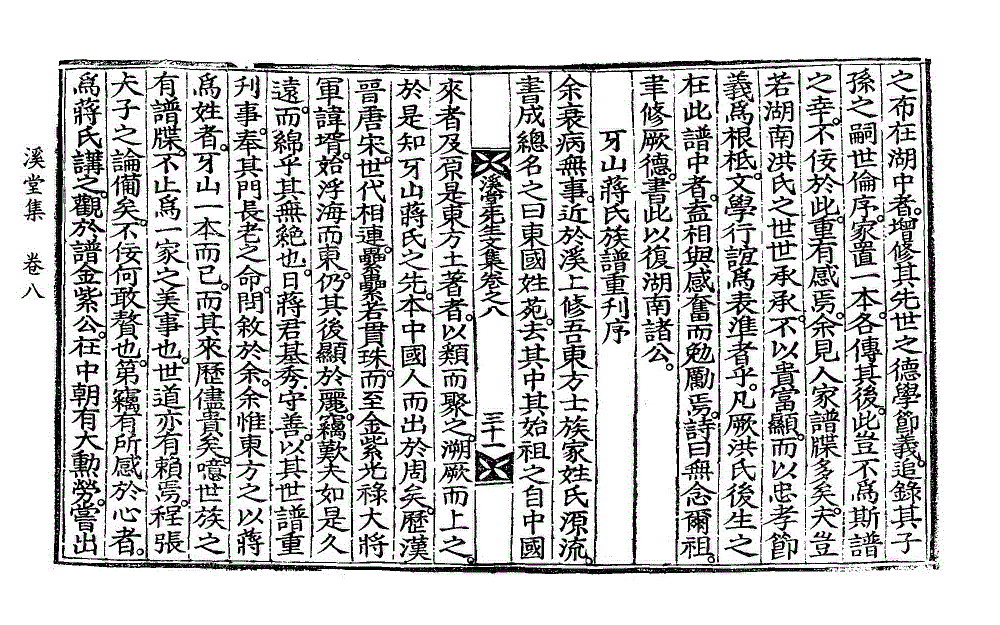 之布在湖中者。增修其先世之德學節義。追錄其子
孫之嗣世倫序。家置一本。各傳其後。此豈不爲斯譜
之幸。不佞於此。重有感焉。余見人家譜牒多矣。夫豈
若湖南洪氏之世世承承。不以貴富顯。而以忠孝節
義爲根柢。文學行誼爲表準者乎。凡厥洪氏後生之
在此譜中者。盍相與感奮而勉勵焉。詩曰無念爾祖。
聿修厥德。書此以復湖南諸公。
牙山蔣氏族譜重刊序
余衰病無事。近於溪上修吾東方士族家姓氏源流。
書成總名之曰東國姓苑。去其中其始祖之自中國
溪堂先生文集卷之八
三十一
來者及原是東方土著者。以類而聚之。溯厥而上之。
於是知牙山蔣氏之先。本中國人而出於周矣。歷漢
晉唐宋。世代相連。纍纍若貫珠。而至金紫光祿大將
軍諱壻。始浮海而東。仍其後顯於麗。竊歎夫如是久
遠。而綿乎其無絶也。日蔣君基秀,守善。以其世譜重
刊事。奉其門長老之命。問敘於余。余惟東方之以蔣
爲姓者。牙山一本而已。而其來歷儘貴矣。噫世族之
有譜牒。不止爲一家之美事也。世道亦有賴焉。程張
夫子之論備矣。不佞何敢贅也。第竊有所感於心者。
爲蔣氏講之。觀於譜金紫公。在中朝有大勳勞。嘗出
溪堂集 卷八